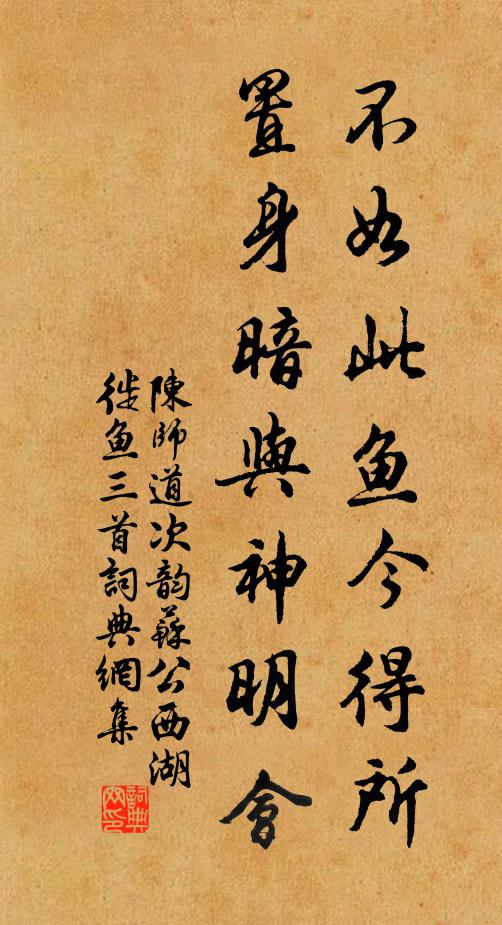 不如此鱼今得所
置身暗與神明會
陳師道次韵蘇公西湖
徙鱼三首詞典網集
詞典
网印